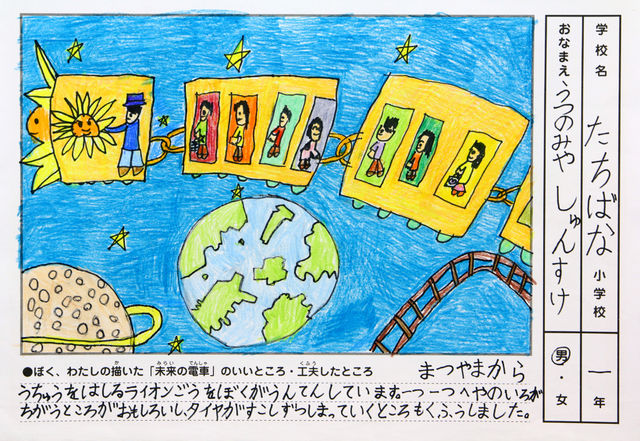 学校名 たちばな 小学校 一 年
おなまえ、うつのみや しゅんすけ 男・女
●ぼく、わたしの描いた「未来の電車」のいいところ・工夫したところ まつやまから
うちゅうをはしるライオンごうをぼくがうんてんしています。一つ一つへやのいろが
ちがうところがおもしろいし、タイヤがすこしずつしまっていくところもくふうしました。